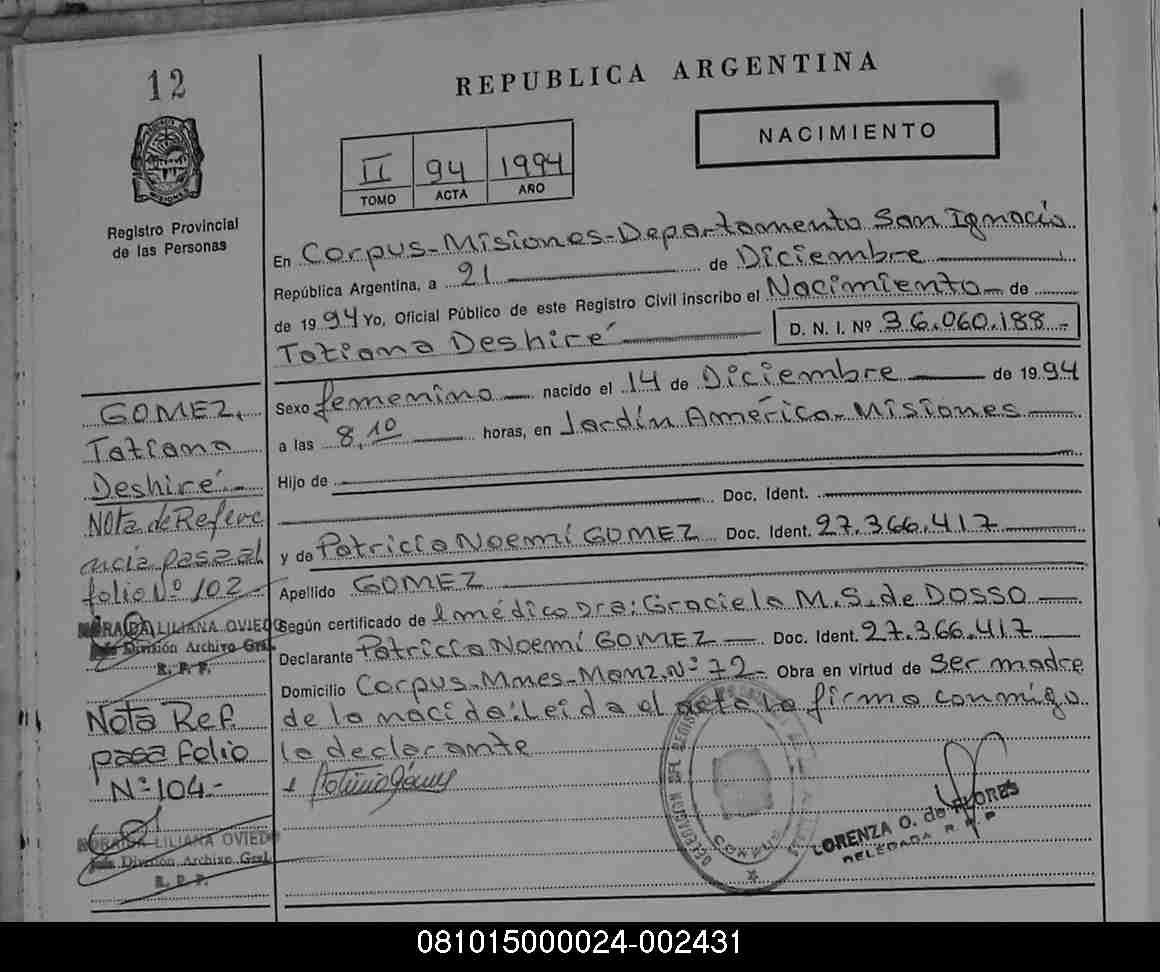 12
REPUBLICA ARGENTINA
NACIMIENTO
II 94 1994
TOMO ACTA AÑO
Registro Provincial
de las Personas
En Corpus-Misiones-Departamento San Ignacio
República Argentina, a 21 de Diciembre
de 1994 Yo, Oficial Público de este Registro Civil inscribo el Nacimiento de
Tatiana Deshiré D. N. I. Nº 36.060.188.-
Sexo femenino nacido el 14 de Diciembre de 1994
a las 8,10 horas, en Jardín América-Misiones
Hijo de
Doc. Ident.
y de Patricia Noemí GOMEZ Doc. Ident. 27.366.417
Apellido GOMEZ
Según certificado de l médico Dra: Graciela M.S. de DOSSO
Declarante Patricia Noemí GOMEZ Doc. Ident. 27.366.417
Domicilio Corpus-Mnes-Manz.Nº 72- Obra en virtud de ser madre
de la nacida: Leida el acta la firma conmigo
la declarante
LORENZA O. de FLORES
DELEGADA R. P. P
GOMEZ,
Tatiana
Deshiré-
Nota de Refere
ncia pasa al
folio Nº 102
LILIANA OVIEDO
División Archivo Gral.
R. P. P.
Nota Ref.
pasa folio
Nº 104.-
LILIANA OVIEDO
División Archivo Gral.
R. P. P.
081015000024-002431